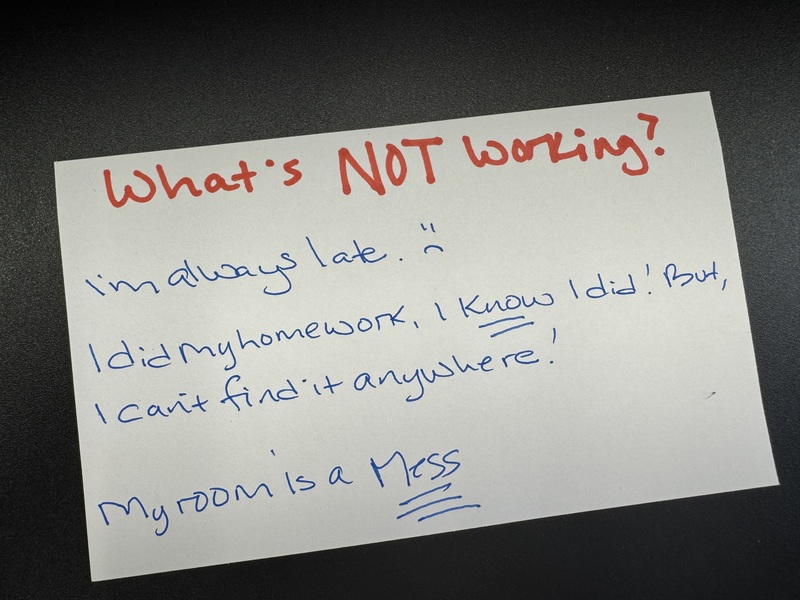 What's NOT working?
I'm always late. :(
I did my homework, I know I did! But,
I can't find it anywhere!
My room is a Mess